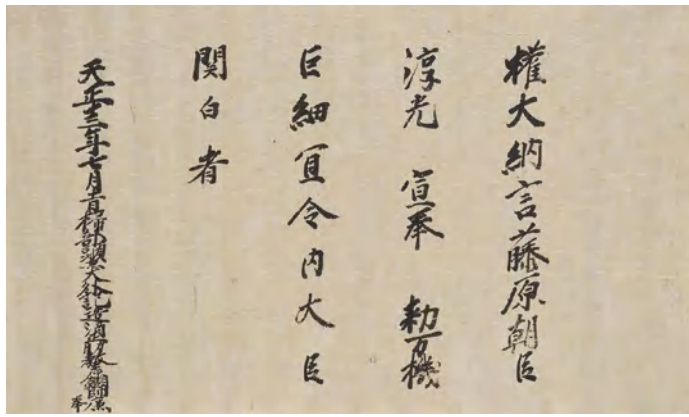 權大納言藤原朝臣
淳光 宣奉 勅万機
巨細宜令内大臣
関白者
天正十三年七月十一日掃部頭兼大外記造酒正中原朝臣師廉奉